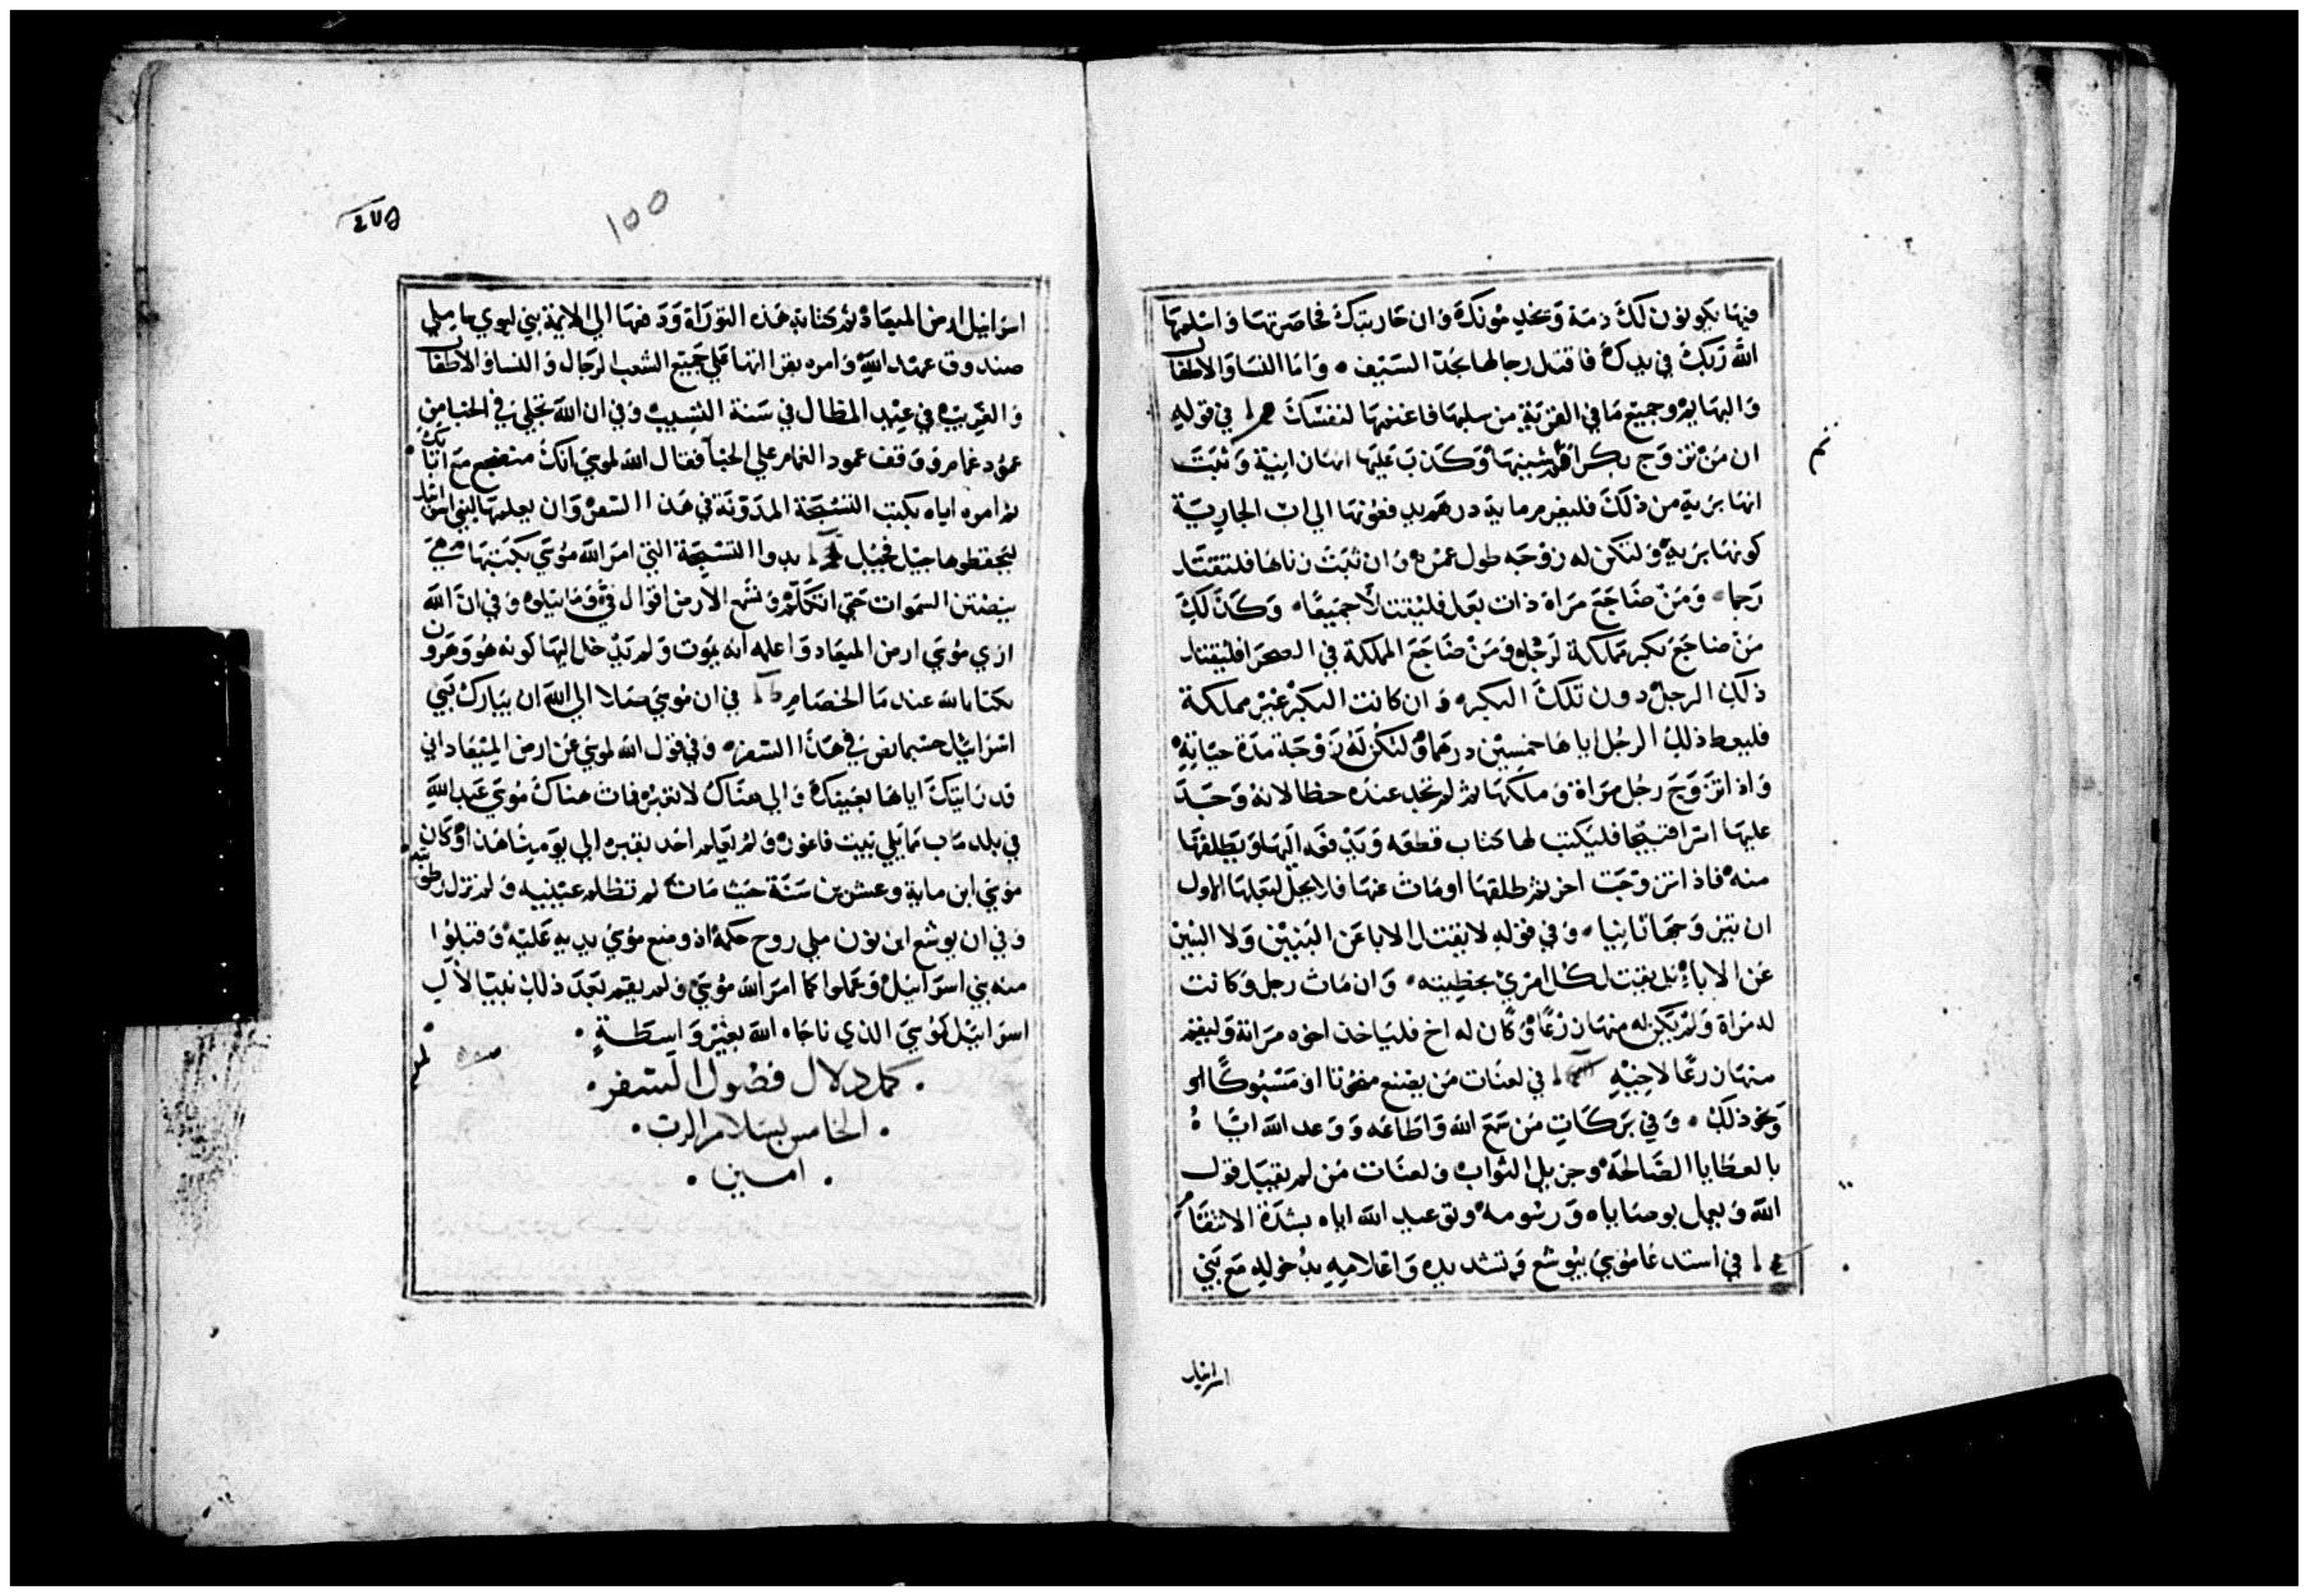 فيها يكونون لك ذمة ويخدمونك وان حاربتك فحاصرتها واسلمها
الله ربك في يدك فاقتل رجالها بحد السيف • واما النسا والاطفال
والبهايم وجميع ما في القرية من سلبها فاغنمها لنفسك في قوله
ان من تزوج بكرا وكذب عليها انها زانية وثبت
انها برية من ذلك فليغرم ماية درهم يدفعونها الي اب الجارية
كونها برية ولتكن له زوجه طول عمره وان ثبت زناها فلتقتل
رجما • ومن ضاجع مراة ذات بعل فليقتلا جميعا • وكذلك
من ضاجع بكر مملكة لرجل ومن ضاجع المملكة في الصحرا فليقتل
ذلك الرجل دون تلك البكر • وان كانت البكر غير مملكة
فليعط ذلك الرجل اباها خمسين درهما ولتكن له زوجة مدة حياته
واذا تزوج رجل مراة وملكها ثم لم تجد عنده حظا لانه وجد
عليها امرا قبيحا فليكتب لها كتاب قطعه ويدفعه اليها ويطلقها
منه فاذا تزوجت اخر ثم طلقها او مات عنها فلا يحل لبعلها الاول
ان يتزوجها ثانيا • وفي قوله لا يقتل الابا عن البنين ولا البنين
عن الابا بل يقتل كل امري بخطيته • وان مات رجل وكانت
له مراة ولم يكن له منها زرعا وكان له اخ فلياخذ اخوه مراته وليقم
منها زرعا لاخيه في لعنات من يصنع منحوتا او مسبوكا او
ونحو ذلك • وفي بركات من سمع الله واطاعه ووعد الله اياه
بالعطايا الصالحة وجزيل الثواب ولعنات من لم يقبل قول
الله ويعمل بوصاياه ورسومه وتوعيد الله اياه بشدة الانتقام
في استدعا موسي بيوشع وتشديده واعلامه بدخوله مع بني
اسرائيل
٤٧٥
100
اسرائيل ارض الميعاد ثم كتابة هذه التوراة ودفعها الي الايمة بني ليوي حاملي
صندوق عهد الله وامره بقراتها علي جميع الشعب الرجال والنسا والاطفال
والغريب في عيد المظال في سنة التسييب وفي ان الله تجلي في الخبا من
عمود غمام ووقف عمود الغمام علي الخبا فقال الله لموسي انك منضجع مع ابائك
ثم امره اياه بكتب التسبحة المدونة في هذا السفر وان يعلمها لبني اسرائيل
ليحفظوها جيل فجيل بدوا التسبحة التي امر الله موسي بكتبها هي
ينصتن السموات حتي اتكلم وتسمع الارض اقوال في وما يتلوه وفي ان الله
اري موسي ارض الميعاد واعلمه انه يموت ولم يدخل اليها كونه هو وهرون
عند ما الخصام في ان موسي صلا الي الله ان يبارك بني
اسرائيل حسبما نص في هذا السفر • وفي قول الله لموسي عن ارض الميعاد اني
قد رايتك اياها بعينك والي هناك لا تعبر فمات هناك موسي عبد الله
في بلد ماب مما يلي بيت فاغور ولم يعلم احد بقبره الي يومنا هذا وكان
موسي ابن ماية وعشرين سنة حيث مات لم تظلم عينيه ولم تزل رطوبته
وفي ان يوشع ابن نون ملي روح حكمة اذ وضع موسي يديه عليه وقبلوا
منه بني اسرائيل وعملوا كما امر الله موسي ولم يقم بعد ذلك نبيا لال
اسرائيل كموسي الذي ناجاه الله بغير واسطة •
• كمل دلال فصول السفر •
• الخامس بسلام الرب •
• امين •